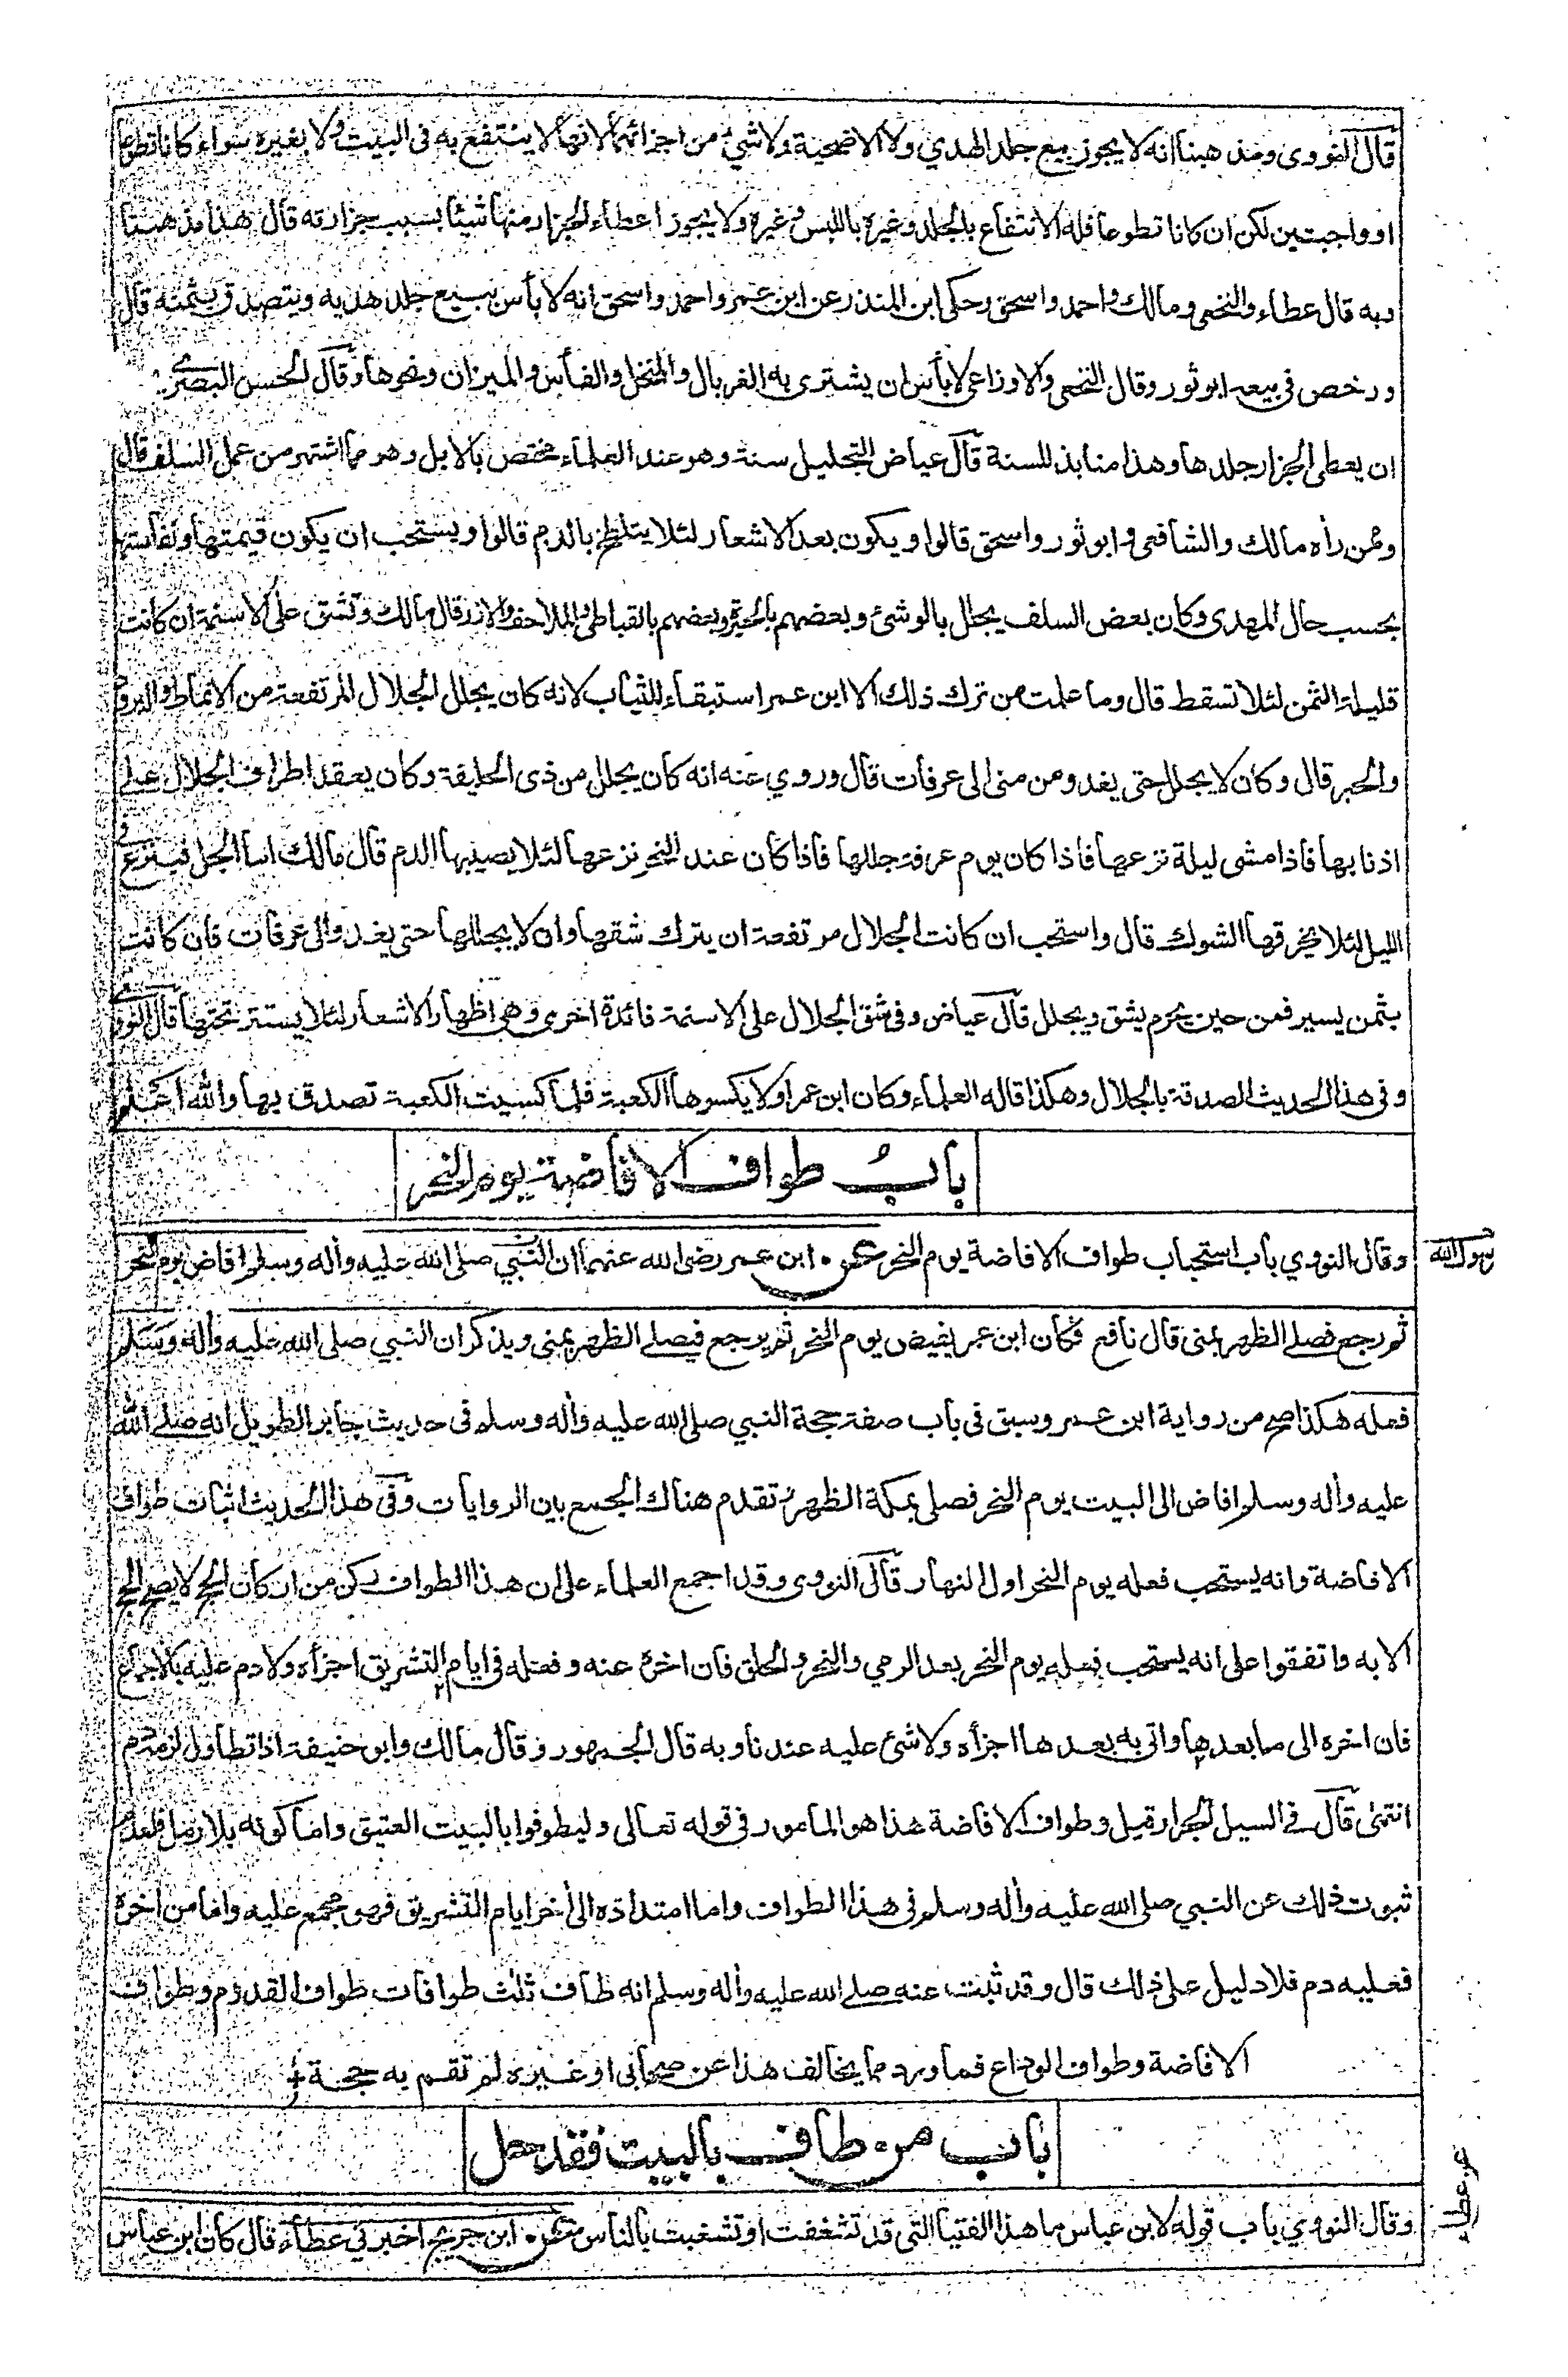 قال النووى ومذهبنا انه لا يجوز بيع جلد الهدي ولا الاضحية ولا شئ من اجزائهما لانها لا ينتفع به فى البيت ولا بغيره سواء كانا تطوعا
او واجبتين لكن ان كانا تطوعا فله الانتفاع بالجلد وغيره باللبس وغيره ولا يجوز اعطاء الجزار منها شيئا بسبب جزارته قال هذا مذهبنا
وبه قال عطاء والنخعى ومالك واحمد واسحق وحكى ابن المنذر عن ابن عمر واحمد واسحق انه لا بأس ببيع جلد هديه ويتصدق بثمنه قال
ورخص فى بيعه ابو ثور وقال النخعى والاوزاعى لا بأس ان يشترى به الغربال والمنخل والفأس والميزان ونحوها وقال الحسن البصرى
ان يعطى الجزار جلدها وهذا منابذ للسنة قال عياض التجليل سنة وهو عند العلماء مختص بالابل وهو مما اشتهر من عمل السلف قال
وممن رأه مالك والشافعى وابو ثور واسحق قالوا ويكون بعد الاشعار لئلا يتلطخ بالدم قالوا ويستحب ان يكون قيمتها ونفاستها
بحسب حال المهدى وكان بعض السلف يجلل بالوشئ وبعضهم بالحبرة وبعضهم بالقباطى والملاحف والازر قال مالك وتشق على الاسنمة ان كانت
قليلة الثمن لئلا تسقط قال وما علمت من ترك ذلك الا ابن عمر استبقاء للثياب لانه كان يجلل الجلال المرتفعة من الانماط والبرود
والحبر قال وكان لا يجلل حتى يغدو من منى الى عرفات قال وروي عنه انه كان يجلل من ذى الحليفة وكان يعقد اطراف الجلال على
اذنابها فاذا مشى ليلة نزعها فاذا كان يوم عرفة جللها فاذا كان عند النحر نزعها لئلا يصيبها الدم قال مالك اما الجل فينزع فى
الليل لئلا يخرقها الشوك قال واستحب ان كانت الجلال مرتفعة ان يترك شقها وان لا يجللها حتى يغدو الى عرفات فان كانت
بثمن يسير فمن حين يحرم يشق ويجلل قال عياض وفى شق الجلال على الاسنمة فائدة اخرى وهى اظهار الاشعار لئلا يستتر تحتها قال النووى
وفى هذا الحديث الصدقة بالجلال وهكذا قاله العلماء وكان ابن عمر اولا يكسوها الكعبة فلما كسيت الكعبة تصدق بها والله اعلم
باب طواف الافاضة يوم النحر
وقال النووي باب استحباب طواف الافاضة يوم النحر عن ابن عمر رضى الله عنهما ان النبي صلى الله عليه وأله وسلم افاض يوم النحر
رسول الله
ثم رجع فصلى الظهر بمنى قال نافع فكان ابن عمر يفيض يوم النحر ثم يرجع فيصلى الظهر بمنى ويذكر ان النبي صلى الله عليه وأله وسلم
فعله هكذا صح من رواية ابن عمر وسبق فى باب صفة حجة النبي صلى الله عليه وأله وسلم فى حديث جابر الطويل انه صلى الله
عليه وأله وسلم افاض الى البيت يوم النحر فصلى بمكة الظهر وتقدم هناك الجمع بين الروايات وفى هذا الحديث اثبات طواف
الافاضة وانه يستحب فعله يوم النحر اول النهار قال النووى وقد اجمع العلماء على ان هذا الطواف ركن من اركان الحج لا يصح الحج
الا به واتفقوا على انه يستحب فعله يوم النحر بعد الرمي والنحر والحلق فان اخره عنه وفعله فى ايام التشريق اجزأه ولا دم عليه بالاجماع
فان اخره الى ما بعدها واتى به بعدها اجزأه ولا شئ عليه عندنا وبه قال الجمهور وقال مالك وابو حنيفة اذا تطاول لزمه دم
انتهى قال فى السيل الجرار قيل وطواف الافاضة هذا هو المأمور فى قوله تعالى وليطوفوا بالبيت العتيق واما كونه بلا رمل فلعدم
ثبوت ذلك عن النبي صلى الله عليه وأله وسلم فى هذا الطواف واما امتداده الى أخر ايام التشريق فهو مجمع عليه واما من اخره
فعليه دم فلا دليل على ذلك قال وقد ثبت عنه صلى الله عليه وأله وسلم انه طاف ثلث طوافات طواف القدوم وطواف
الافاضة وطواف الوداع فما ورد مما يخالف هذا عن صحابى او غيره لم تقم به حجة
باب من طاف بالبيت فقد حل
وقال النووي باب قوله لابن عباس ما هذا الفتيا التى قد تشغفت او تشغبت بالناس عن ابن جريج اخبرني عطاء قال كان ابن عباس
عن عطاء